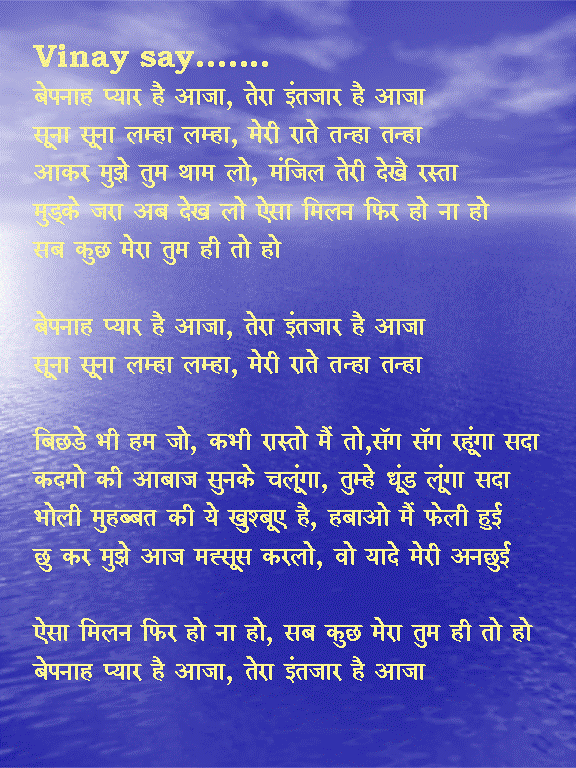 Vinay say.......
बेपनाह प्यार है आजा, तेरा इंतजार है आजा
सूना सूना लम्हा लम्हा, मेरी राते तन्हा तन्हा
आकर मुझे तुम थाम लो, मंजिल तेरी देखै रस्ता
मुड्के जरा अब देख लो ऐसा मिलन फिर हो ना हो
सब कुछ मेरा तुम ही तो हो
बेपनाह प्यार है आजा, तेरा इंतजार है आजा
सूना सूना लम्हा लम्हा, मेरी राते तन्हा तन्हा
बिछडे भी हम जो, कभी रास्तो मैं तो,सॅग सॅग रहूंगा सदा
कदमो की आबाज सुनके चलूंगा, तुम्हे धूंड लूंगा सदा
भोली मुहब्बत की ये खुश्बूए है, हबाओ मैं फेली हुई
छु कर मुझे आज मह्सूस करलो, वो यादे मेरी अनछुई
ऐसा मिलन फिर हो ना हो, सब कुछ मेरा तुम ही तो हो
बेपनाह प्यार है आजा, तेरा इंतजार है आजा